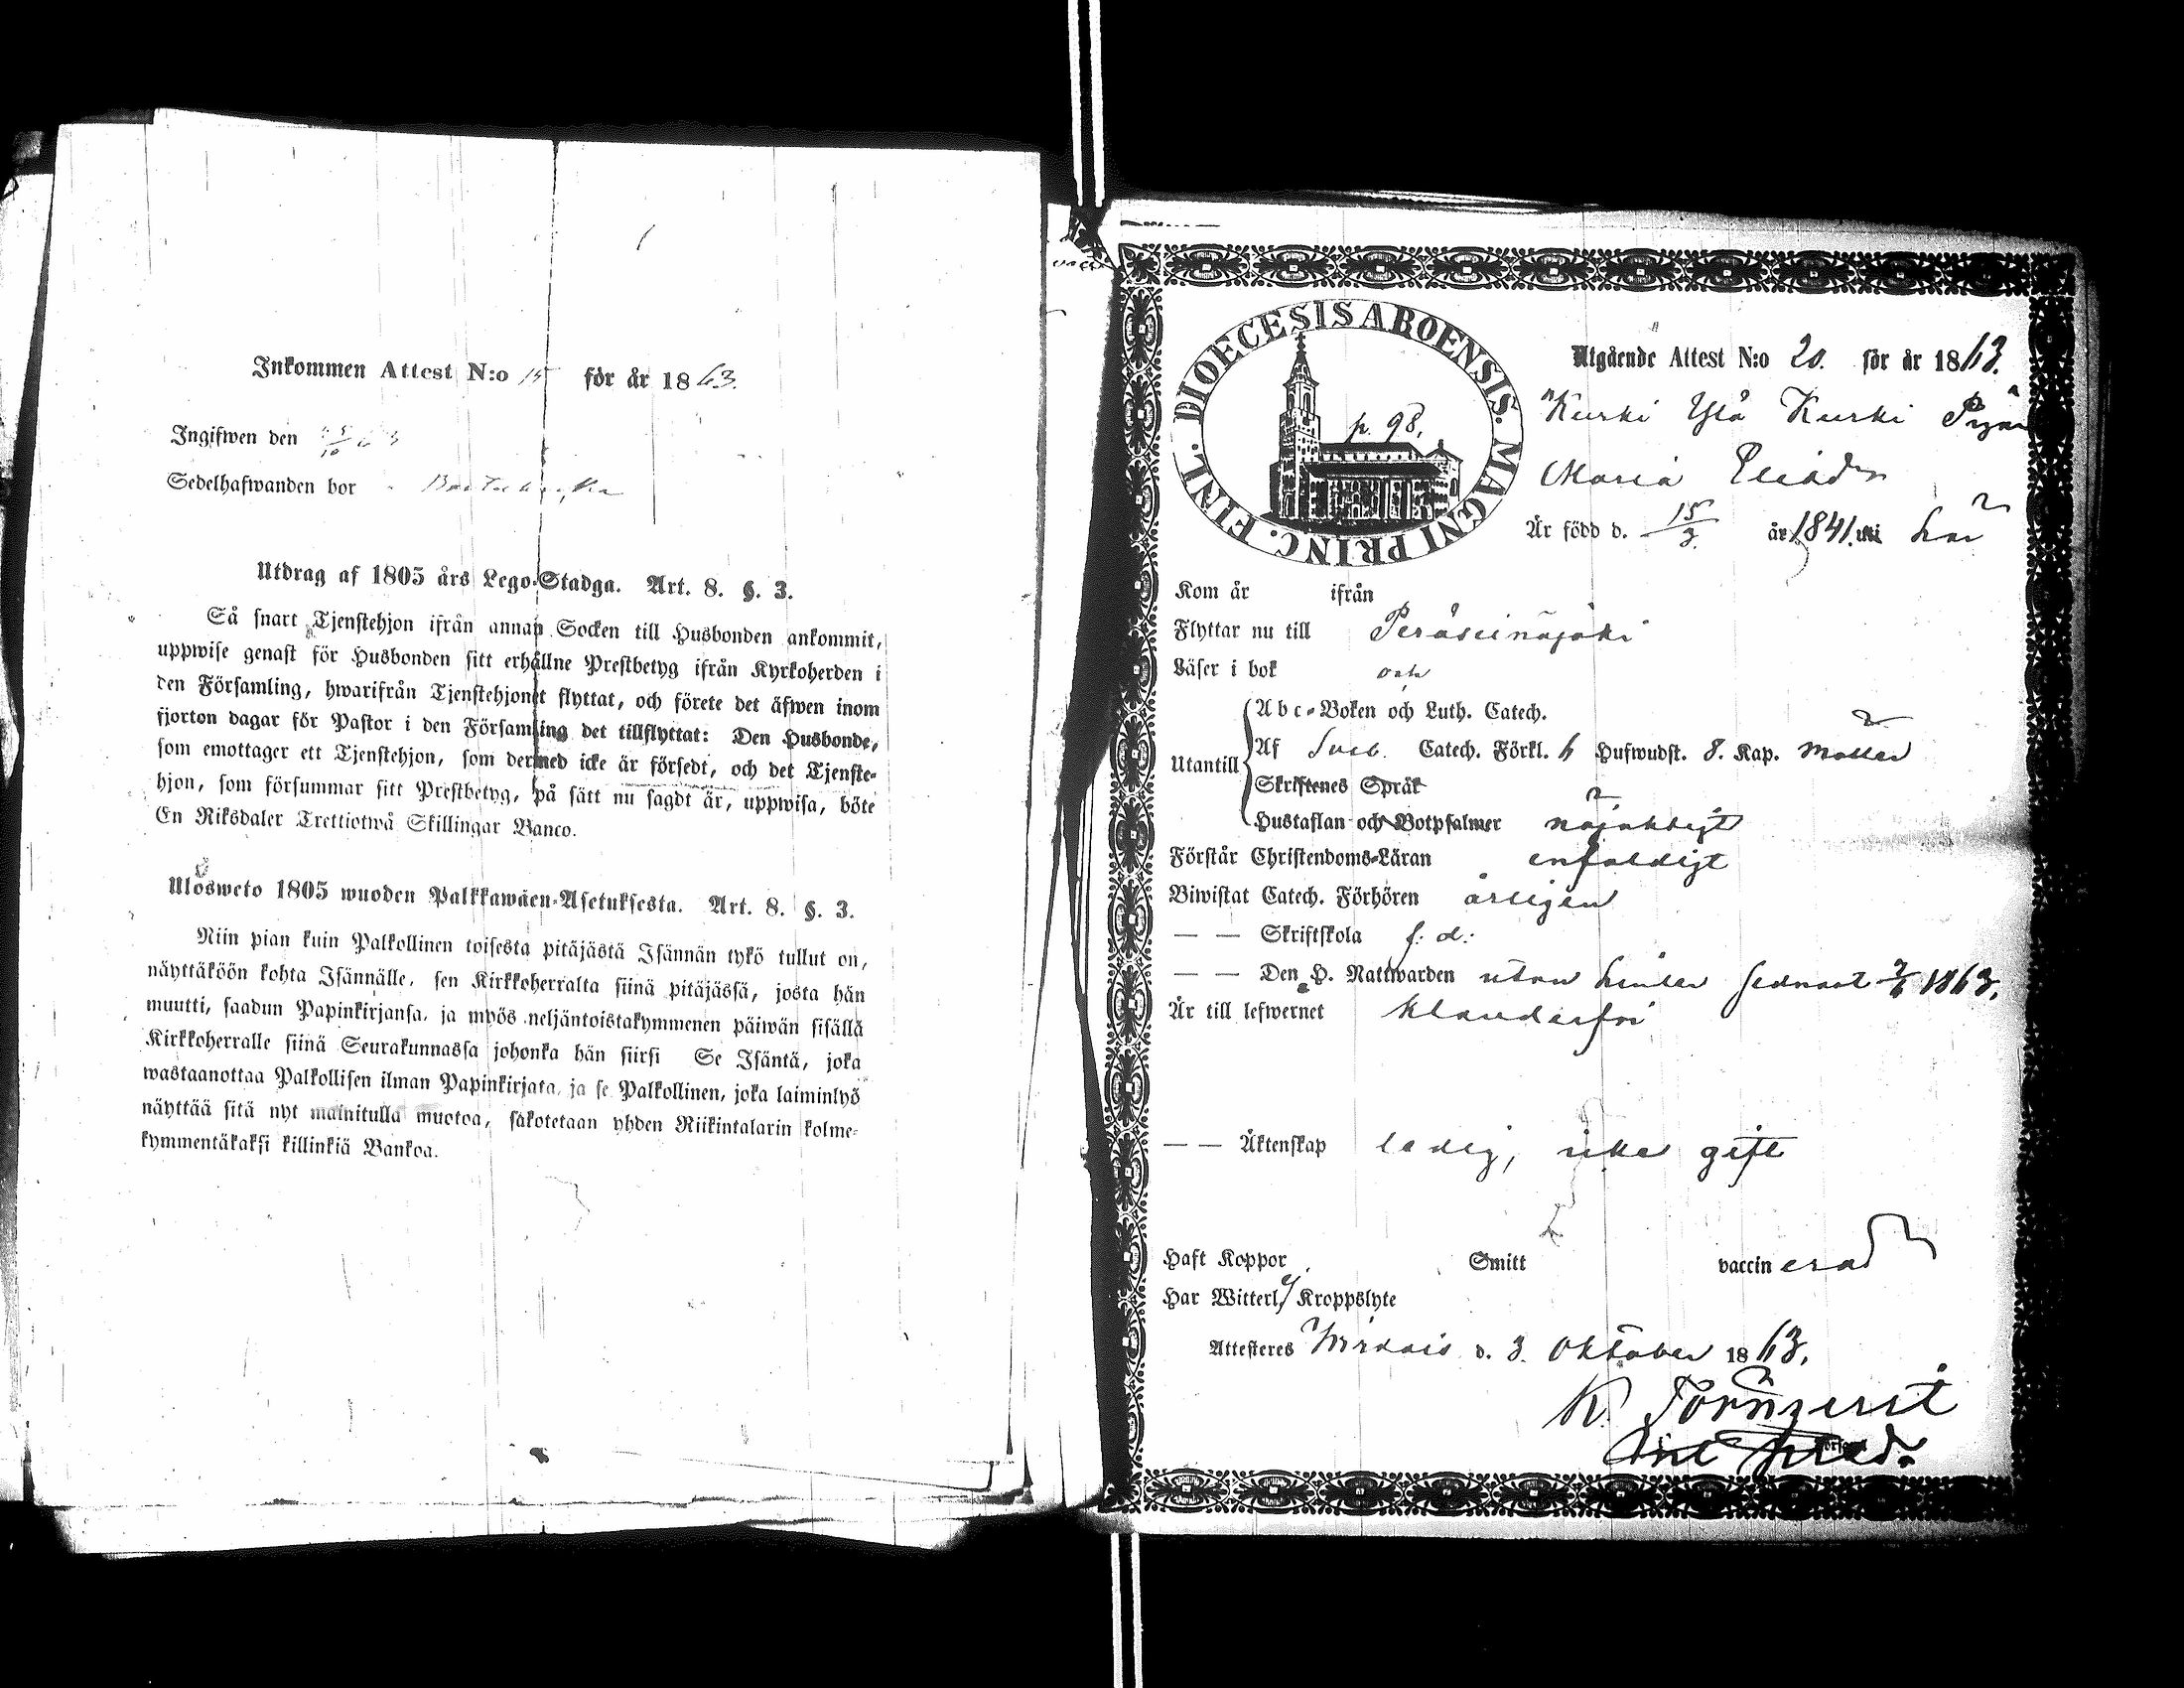 Inkommen Attest N:o 15 för år 1863.
Ingifwen den 25/10 63
Sedelhafwanden bor
Utdrag af 1805 års Lego-Stadga. Art. 8. §. 3.
Så snart Tjenstehjon ifrån annan Socken till Husbonden ankommit,
uppwise genast för Husbonden sitt erhållne Prestbetyg ifrån Kyrkoherden i
den Församling, hwarifrån Tjenstehjonet flyttat, och förete det äfwen inom
fjorton dagar för Pastor i den Församling det tillflyttat: Den Husbonde,
som emottager ett Tjenstehjon, som dermed icke är försedt, och det Tjenste-
hjon, som försummar sitt Prestbetyg, på sätt nu sagdt är, uppwisa, böte
En Riksdaler Trettiotwå Skillingar Banco.
Ulosweto 1805 wuoden Palkkawäen-Asetuksesta. Art. 8. §. 3.
Niin pian kuin Palkollinen toisesta pitäjästä Isännän tykö tullut on,
näyttäköön kohta Isännälle, sen Kirkkoherralta siinä pitäjässä, josta hän
muutti, saadun Papinkirjansa, ja myös neljäntoistakymmenen päiwän sisällä
Kirkkoherralle siinä Seurakunnassa johonka hän siirsi Se Isäntä, joka
wastaanottaa Palkollisen ilman Papinkirjata, ja se Palkollinen, joka laiminlyö
näyttää sitä nyt mainitulla muotoa, sakotetaan yhden Riikintalarin kolme-
kymmentäkaksi killinkiä Bankoa.
DIOECESIS ABOENSIS. MAGNI PRINC. FINL.
p. 98.
Utgående Attest N:o 20. för år 1863.
Kurki Ylä Kurki
Maria Eliasdr
Är född d. 15/3. år 1841. uti här
Kom år ifrån
Flyttar nu till Peräseinäjoki
Läser i bok och
Utantill
Abc-Boken och Luth. Catech.
Af Sveb. Catech. Förkl. 6 Hufwudst. 8. Kap.
Skriftenes Språk
Hustaflan och Botpsalmer nöjaktigt
Förstår Christendoms-Läran enfaldigt
Biwistat Catech. Förhören årligen
— — Skriftskola f: d:
— — Den H. Nattwarden utan hinder sednast 7/6 1863.
Är till lefwernet klanderfri
— — Äktenskap ledig, icke gift
Haft Koppor Smitt vaccinerad
Har Witterl. ej Kroppslyte
Attesteres Wirdois d. 3. Oktober 1863.
K. Törnqvist